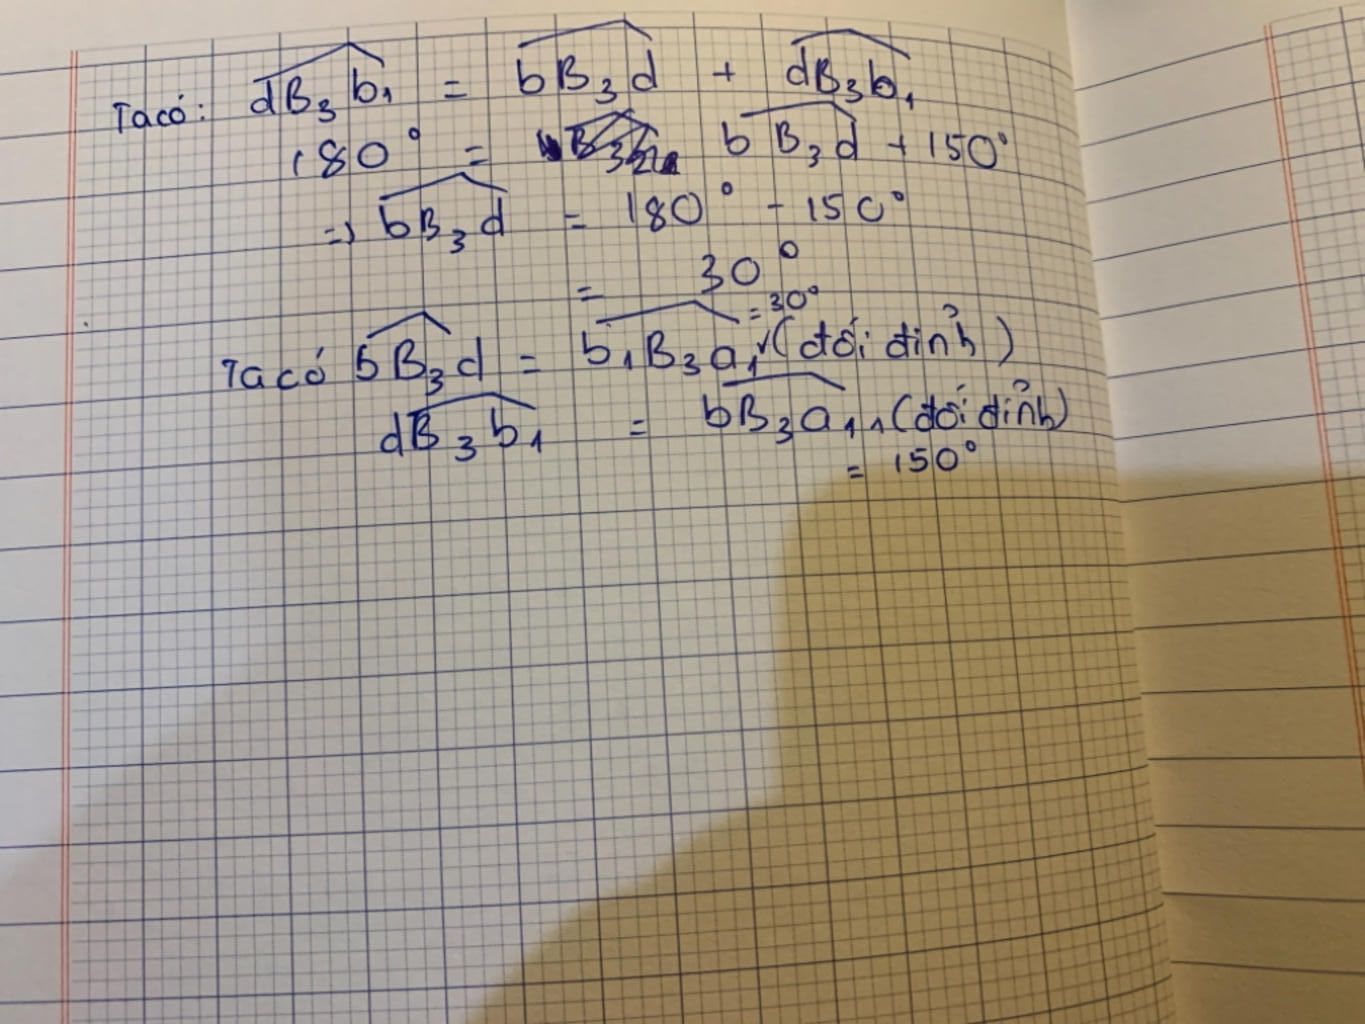 Ta có: dB₃b₁ = bB₃d + dB₃b₁
180° = bB₃d + 150°
=> bB₃d = 180° - 150°
= 30°
= 30°
Ta có bB₃d = b₁B₃a₁ (đối đỉnh)
dB₃b₁ = bB₃a₁₁ (đối đỉnh)
= 150°